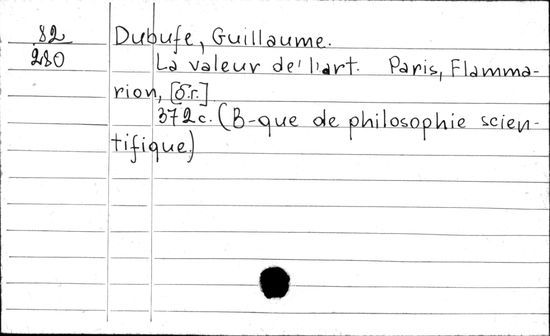 82 Dubufe, Guillaume.
280 La valeur de l'art. Paris, Flamma-
rion, [б.г.]
372c. (B-que de philosophie scien-
tifique)